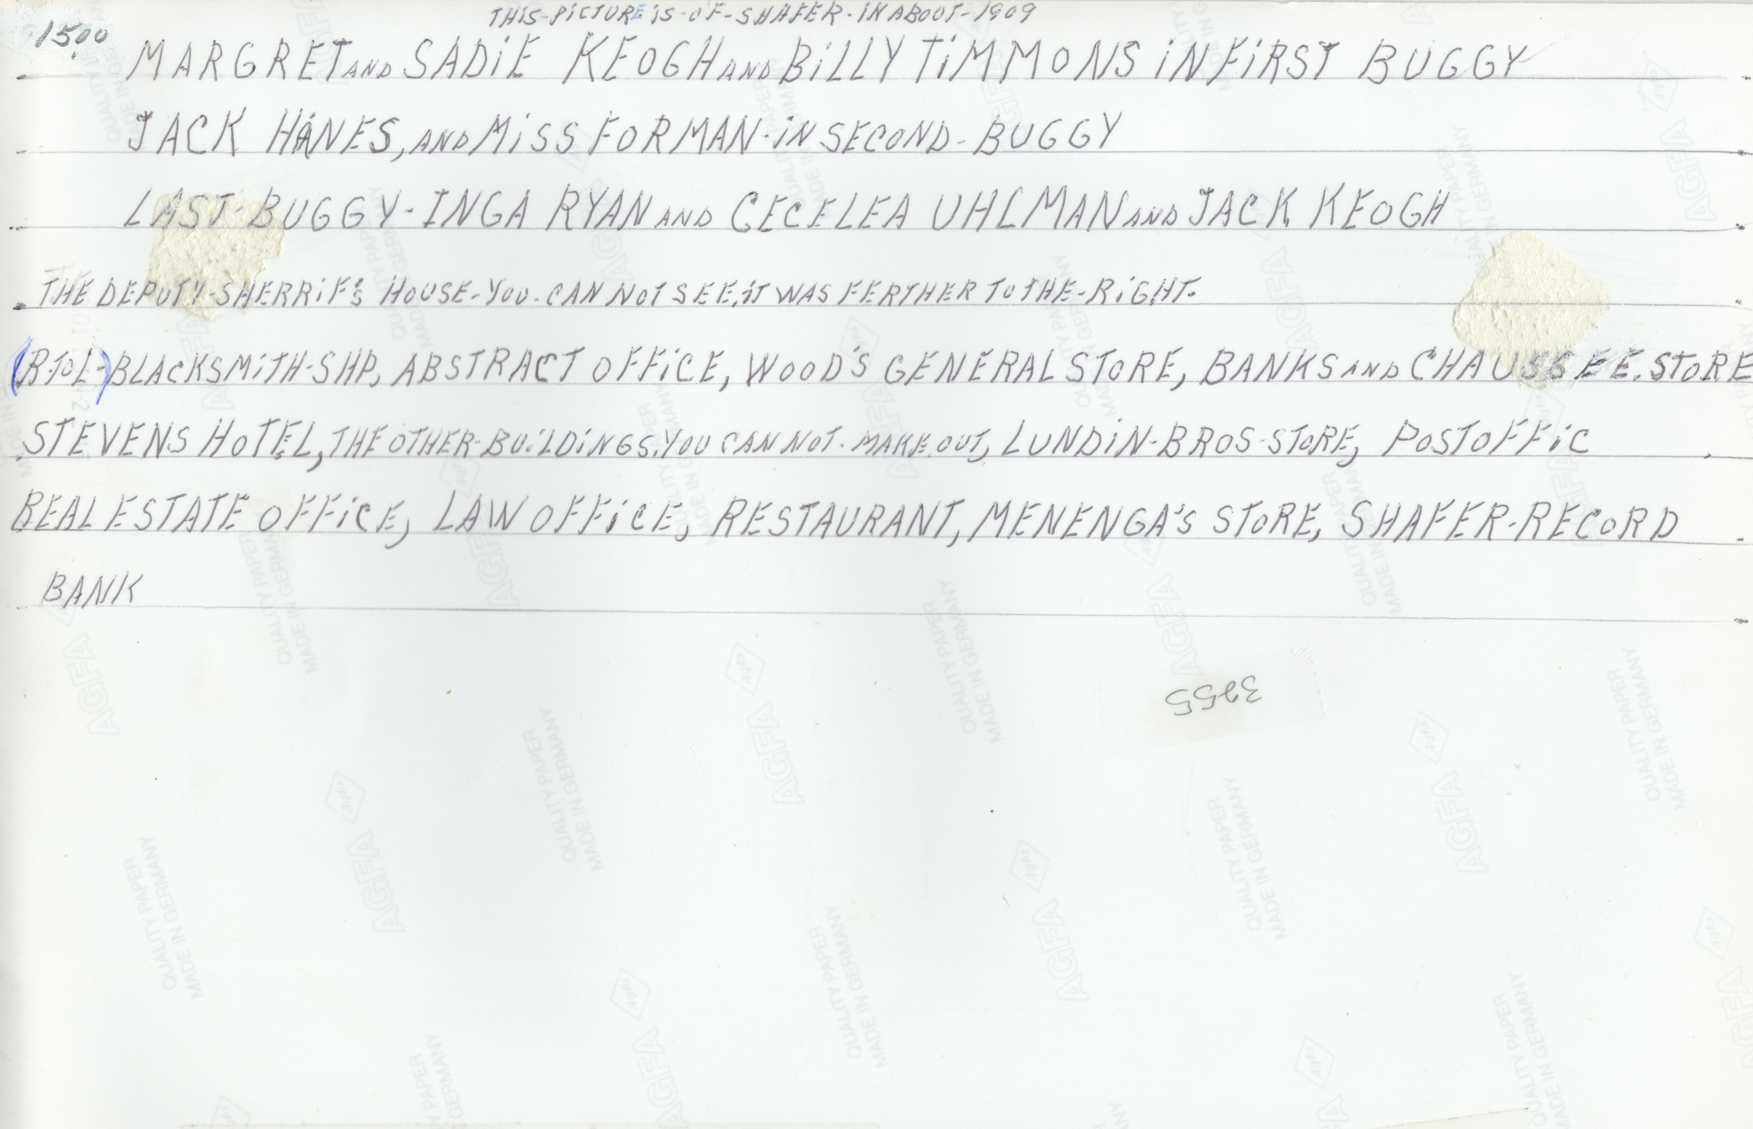 THIS-PICTURE IS-OF-SHAFER-IN ABOUT-1909
1500
MARGRET AND SADIE KEOGH AND BILLY TIMMONS IN FIRST BUGGY
JACK HANES, AND MISS FORMAN-IN SECOND-BUGGY
LAST-BUGGY-INGA RYAN AND CECELEA UHLMAN AND JACK KEOGH
THE DEPUTY-SHERRIF'S HOUSE-YOU-CAN NOT SEE, IT WAS FERTHER TO THE-RIGHT.
(R-TO L-) BLACKSMITH-SHP, ABSTRACT OFFICE, WOOD'S GENERAL STORE, BANKS AND CHAUSSEE. STORE
STEVENS HOTEL, THE OTHER-BUILDINGS, YOU CAN NOT-MAKE OUT, LUNDIN-BROS-STORE, POSTOFFIC
REAL ESTATE OFFICE, LAW OFFICE, RESTAURANT, MENENGA'S STORE, SHAFER-RECORD
BANK
3255
AGFA
QUALITY PAPER
MADE IN GERMANY